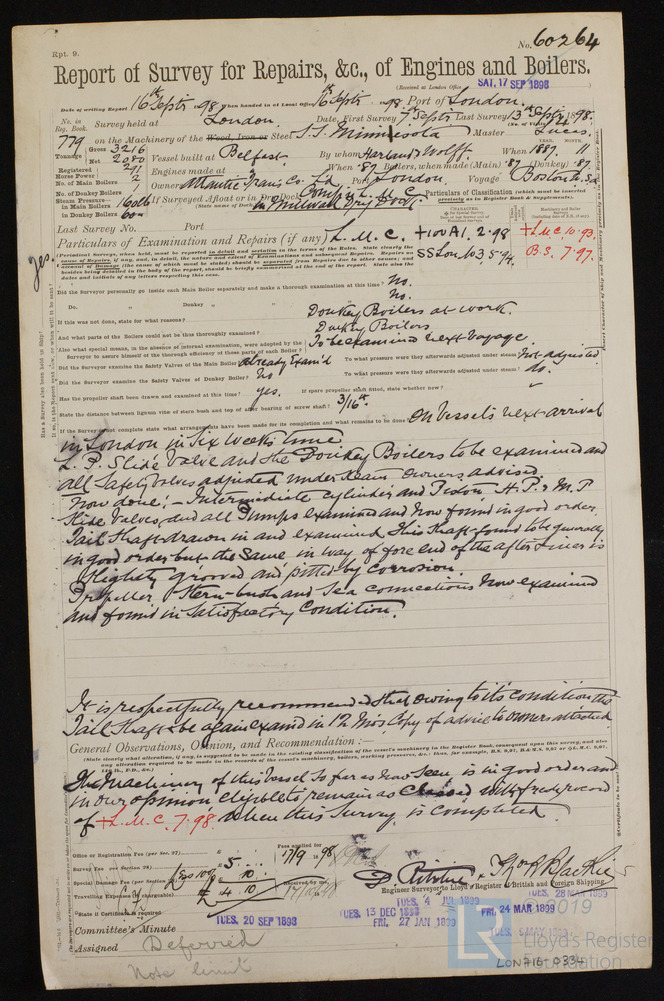 Rpt. 9.
No. 60264
Report of Survey for Repairs, &c., of Engines and Boilers.
(Received at London Office SAT. 17 SEP 1898
Date of writing Report 16th Septr 1898 When handed in at Local Office 16th Septr 1898 Port of London.
No. in Reg. Book. Survey held at London. Date, First Survey 7th Septr Last Survey 13th Septr 1898.
(No. of Visits 4)
779 on the Machinery of the Wood, Iron or Steel S.S. Minnesota Master Lucas.
Tonnage Gross 3216 Net 2080
Vessel built at Belfast. By whom Harland & Wolff. When 1887 11
Registered Horse Power 291
Engines made at " When '87 Boilers, when made (Main) '87 (Donkey) '87
No. of Main Boilers 2
Owners Atlantic Trans. Co. Ld Port London Voyage Boston &c.
No. of Donkey Boilers 1
Steam Pressure in Main Boilers 160 lb
in Donkey Boilers 60
If Surveyed Afloat or in Dry Dock
(State name of Dock) in Millwall Dry Dock.
Particulars of Classification (which must be inserted precisely as in Register Book & Supplements).
Last Survey No. Port
Particulars of Examination and Repairs (if any) L.M.C.
+100A1. 2.98
SS Lon. No3 5.94
+L.M.C. 10.93.
B.S. 7.97.
yes.
Did the Surveyor personally go inside each Main Boiler separately and make a thorough examination at this time? No.
Do. " Donkey " " No.
If this was not done, state for what reasons? Donkey Boilers at work.
And what parts of the Boilers could not be thus thoroughly examined? Donkey Boilers
Also what special means, in the absence of internal examination, were adopted by the Surveyor to assure himself of the thorough efficiency of those parts of each Boiler? To be examined next voyage
Did the Surveyor examine the Safety Valves of the Main Boiler? Already Exam'd To what pressure were they afterwards adjusted under steam? Not adjusted
Did the Surveyor examine the Safety Valves of Donkey Boiler? No To what pressure were they afterwards adjusted under steam? do.
Has the propeller shaft been drawn and examined at this time? yes. If spare propeller shaft fitted, state whether new?
State the distance between lignum vitæ of stern bush and top of after bearing of screw shaft? 3/16"
If the Survey is not complete state what arrangements have been made for its completion and what remains to be done On Vessel's next arrival
in London in Six Weeks time.
L.P. Slide Valve and the Donkey Boilers to be examined and
all Safety Valves adjusted under steam. Owners advised
Now done; – Intermediate Cylinder and Piston, H.P. & M.P
Slide Valves and all Pumps examined and now found in good order.
Tail Shaft drawn in and examined. This Shaft found to be generally
in good order but the same in way of fore end of the after Liner is
Slightly grooved and pitted by Corrosion.
Propeller Stern-bush and Sea Connections Now examined
and found in Satisfactory Condition.
It is respectfully recommended that owing to its condition the
Tail Shaft be again exam'd in 12 Mos. Copy of advice to owners attached
General Observations, Opinion, and Recommendation :—
The Machinery of this Vessel so far as now seen is in good order and
in our opinion eligible to remain as Classed with fresh record
of +L.M.C. 7.98. when this Survey is completed.
Office or Registration Fee (per Sec. 27) £
Survey Fee £ 5 : :
Special Damage Fee £ : 10 :
Travelling Expenses (if chargeable) £ 4 . 10
Fees applied for 17/9 1898
Received by me,
Engineer Surveyor to Lloyd's Register of British and Foreign Shipping
State if Certificate is required
Committee's Minute
TUES. 20 SEP 1898
TUES. 13 DEC 1898
FRI. 27 JAN 1899
TUES. 4 JUL 1899
FRI. 24 MAR 1899
TUES. 28 MAR 1899
TUES. 9 MAY 1899
Assigned Deferred
Note limit
2019
LR
Lloyd's Register
Foundation
LON716-0334